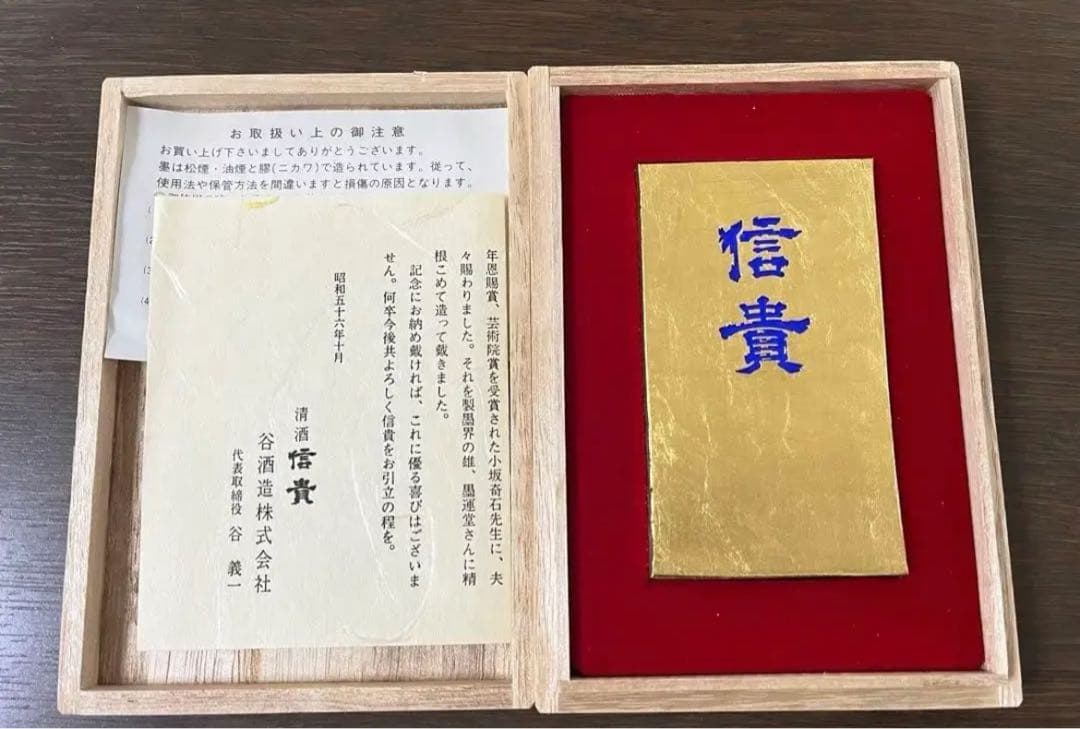 お取扱い上の御注意
お買い上げ下さいましてありがとうございます。
墨は松煙・油煙と膠(ニカワ)で造られています。従って、
使用法や保管方法を間違いますと損傷の原因となります。
年恩賜賞、芸術院賞を受賞された小坂奇石先生に、夫
々賜わりました。それを製墨界の雄、墨運堂さんに精
根こめて造って戴きました。
記念にお納め戴ければ、これに優る喜びはございま
せん。何卒今後共よろしく信貴をお引立の程を。
昭和五十六年十月
清酒 信貴
谷酒造株式会社
代表取締役 谷 義一
信貴